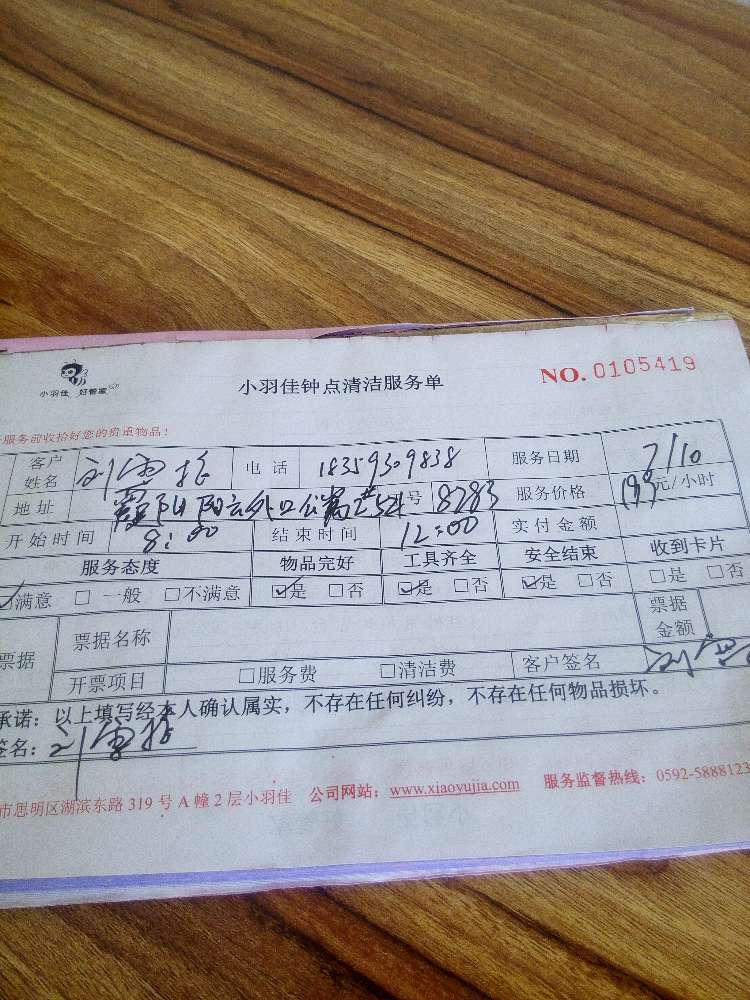 小羽佳 好管家
小羽佳钟点清洁服务单
NO. 0105419
服务前收拾好您的贵重物品！
客户姓名 刘雪 电话 18359309838 服务日期 7/10
地址 霞阳 号 8283 服务价格 元/小时
开始时间 8：00 结束时间 12：00 实付金额
服务态度 物品完好 工具齐全 安全结束 收到卡片
满意 □ 一般 □不满意 ☑是 □否 ☑是 □否 ☑是 □否 □是 □否
票据 票据名称 票据金额
开票项目 □服务费 □清洁费 客户签名 刘雪
承诺：以上填写经本人确认属实，不存在任何纠纷，不存在任何物品损坏。
签名：刘雪
市思明区湖滨东路 319 号 A 幢 2 层小羽佳 公司网站：www.xiaoyujia.com 服务监督热线：0592-5888123